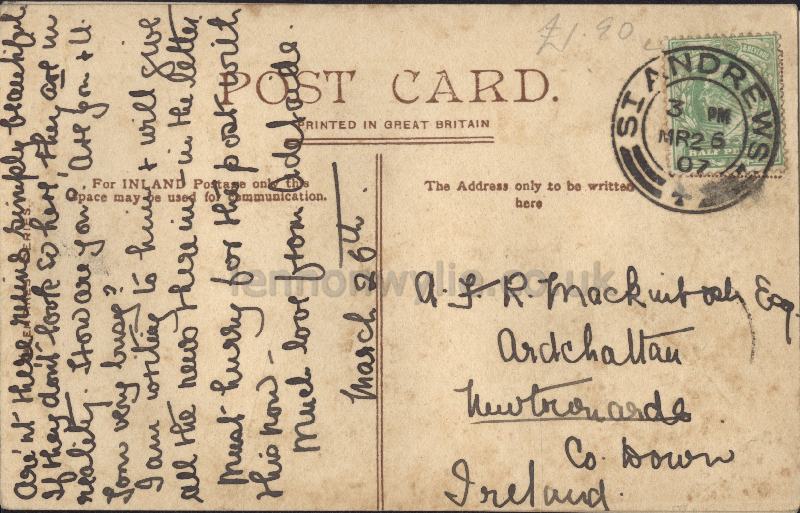 £1.90
POST CARD.
PRINTED IN GREAT BRITAIN
For INLAND Postage only this
Space may be used for communication.
The Address only to be written
here
ST ANDREWS
3 PM
MR 26
07
HALF PE
SERIES.
Are'nt these ruins simply beautiful
If they don't look so here they are in
reality. How are you, are you & U.
Tom very busy?
I am writing to him & will give
all the news therein - in the letter
Must hurry for the post with
this now -
Much love from Adelaide.
March 26th.
A. F. R. Mackintosh Esq
Ardchattan
Newtownards
Co. Down
Ireland.
lennonwylie.co.uk